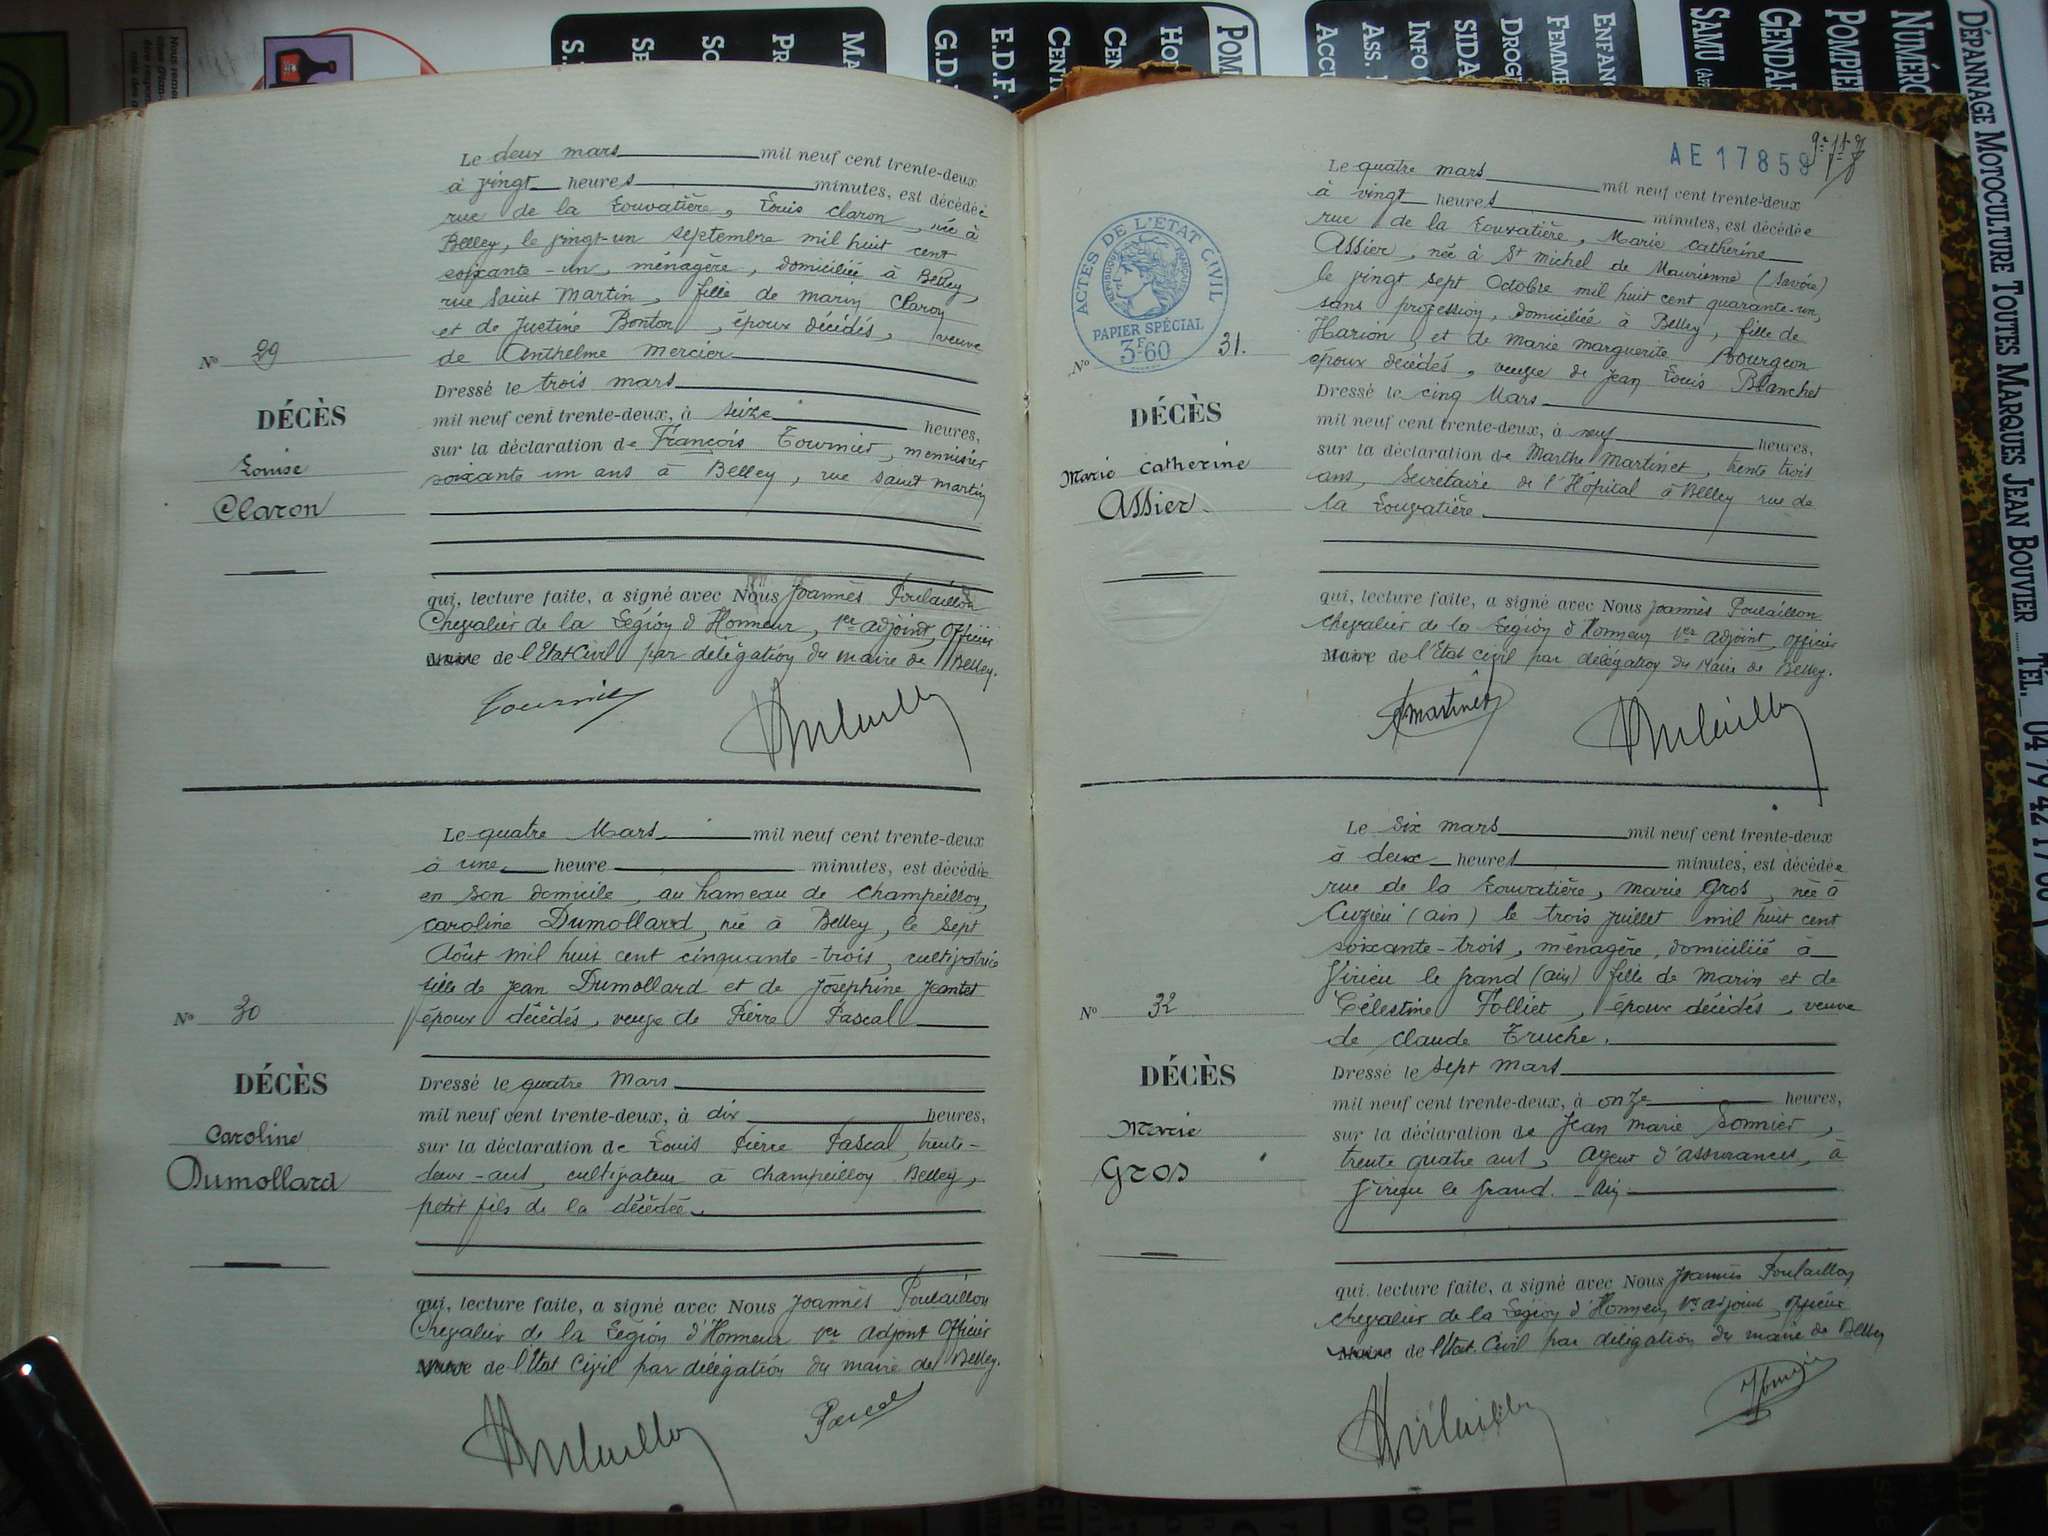 Le deux mars mil neuf cent trente-deux
à vingt heures minutes, est décédée
rue de la Louvatière, Louis Claron, née à
Belley, le vingt-un septembre mil huit cent
soixante-un, ménagère, domiciliée à Belley,
rue Saint Martin, fille de marin Claron
et de Justine Bonton, époux décédés, veuve
de Anthelme Mercier
Nº 29
DÉCÈS
Louise
Claron
Dressé le trois mars
mil neuf cent trente-deux, à seize heures,
sur la déclaration de François Tournier, menuisier
soixante un ans à Belley, rue saint martin
qui, lecture faite, a signé avec Nous Joannès Poulaillon
Chevalier de la Légion d'Honneur, 1er adjoint, officier
Maire de l'Etat Civil par délégation du maire de Belley.
Tournier
Poulaillon
Le quatre Mars mil neuf cent trente-deux
à une heure minutes, est décédée
en son domicile, au hameau de Champeillon,
Caroline Dumollard, née à Belley, le sept
Août mil huit cent cinquante-trois, cultivatrice
fille de Jean Dumollard et de Joséphine Jeantet
époux décédés, veuve de Pierre Pascal
Nº 30
DÉCÈS
Caroline
Dumollard
Dressé le quatre Mars
mil neuf cent trente-deux, à dix heures,
sur la déclaration de Louis Pierre Pascal, trente-
deux-ans, cultivateur à Champeillon Belley,
petit fils de la décédée.
qui, lecture faite, a signé avec Nous Joannès Poulaillon
Chevalier de la Légion d'Honneur 1er adjoint officier
Maire de l'Etat Civil par délégation du maire de Belley.
Poulaillon
Pascal
AE 17859
Le quatre mars mil neuf cent trente-deux
à vingt heures minutes, est décédée
rue de la Louvatière, Marie Catherine
Assier, née à St Michel de Maurienne (Savoie)
le vingt sept Octobre mil huit cent quarante-un,
sans profession, domiciliée à Belley, fille de
Marion et de marie marguerite Bourgeon
époux décédés, veuve de Jean Louis Blanchet
ACTES DE L'ETAT CIVIL
REPUBLIQUE FRANÇAISE
PAPIER SPÉCIAL
3F60
Nº 31.
DÉCÈS
Marie Catherine
Assier
Dressé le cinq Mars
mil neuf cent trente-deux, à neuf heures,
sur la déclaration de Marthe Martinet, trente trois
ans, Secrétaire de l'Hôpital à Belley rue de
la Louvatière.
qui, lecture faite, a signé avec Nous Joannès Poulaillon
Chevalier de la Légion d'Honneur 1er adjoint, officier
Maire de l'Etat Civil par délégation du Maire de Belley.
Martinet
Poulaillon
Le six mars mil neuf cent trente-deux
à deux heures minutes, est décédée
rue de la Louvatière, marie Gros, née à
Cuzieu (ain) le trois juillet mil huit cent
soixante-trois, ménagère, domiciliée à
Virieu le grand (ain) fille de Marin et de
Célestine Folliet, époux décédés, veuve
de Claude Truche.
Nº 32
DÉCÈS
Marie
Gros
Dressé le sept mars
mil neuf cent trente-deux, à onze heures,
sur la déclaration de Jean Marie Sonnier,
trente quatre ans, agent d'assurances, à
Virieu le grand. Ain
qui, lecture faite, a signé avec Nous Joannès Poulaillon
Chevalier de la Légion d'Honneur, 1er adjoint, officier
Maire de l'Etat Civil par délégation du maire de Belley
Poulaillon
DÉPANNAGE MOTOCULTURE TOUTES MARQUES JEAN BOUVIER TÉL. 04 79 42 17
NUMÉRO
POMPIE
GENDAR
SAMU
ENFANC
FEMME
DROGU
SIDA
INFO
ASS.
ACCU
POM
HO
CE
CENT
E.D.F.
G.D.
MA
PR
SO
SE
S.